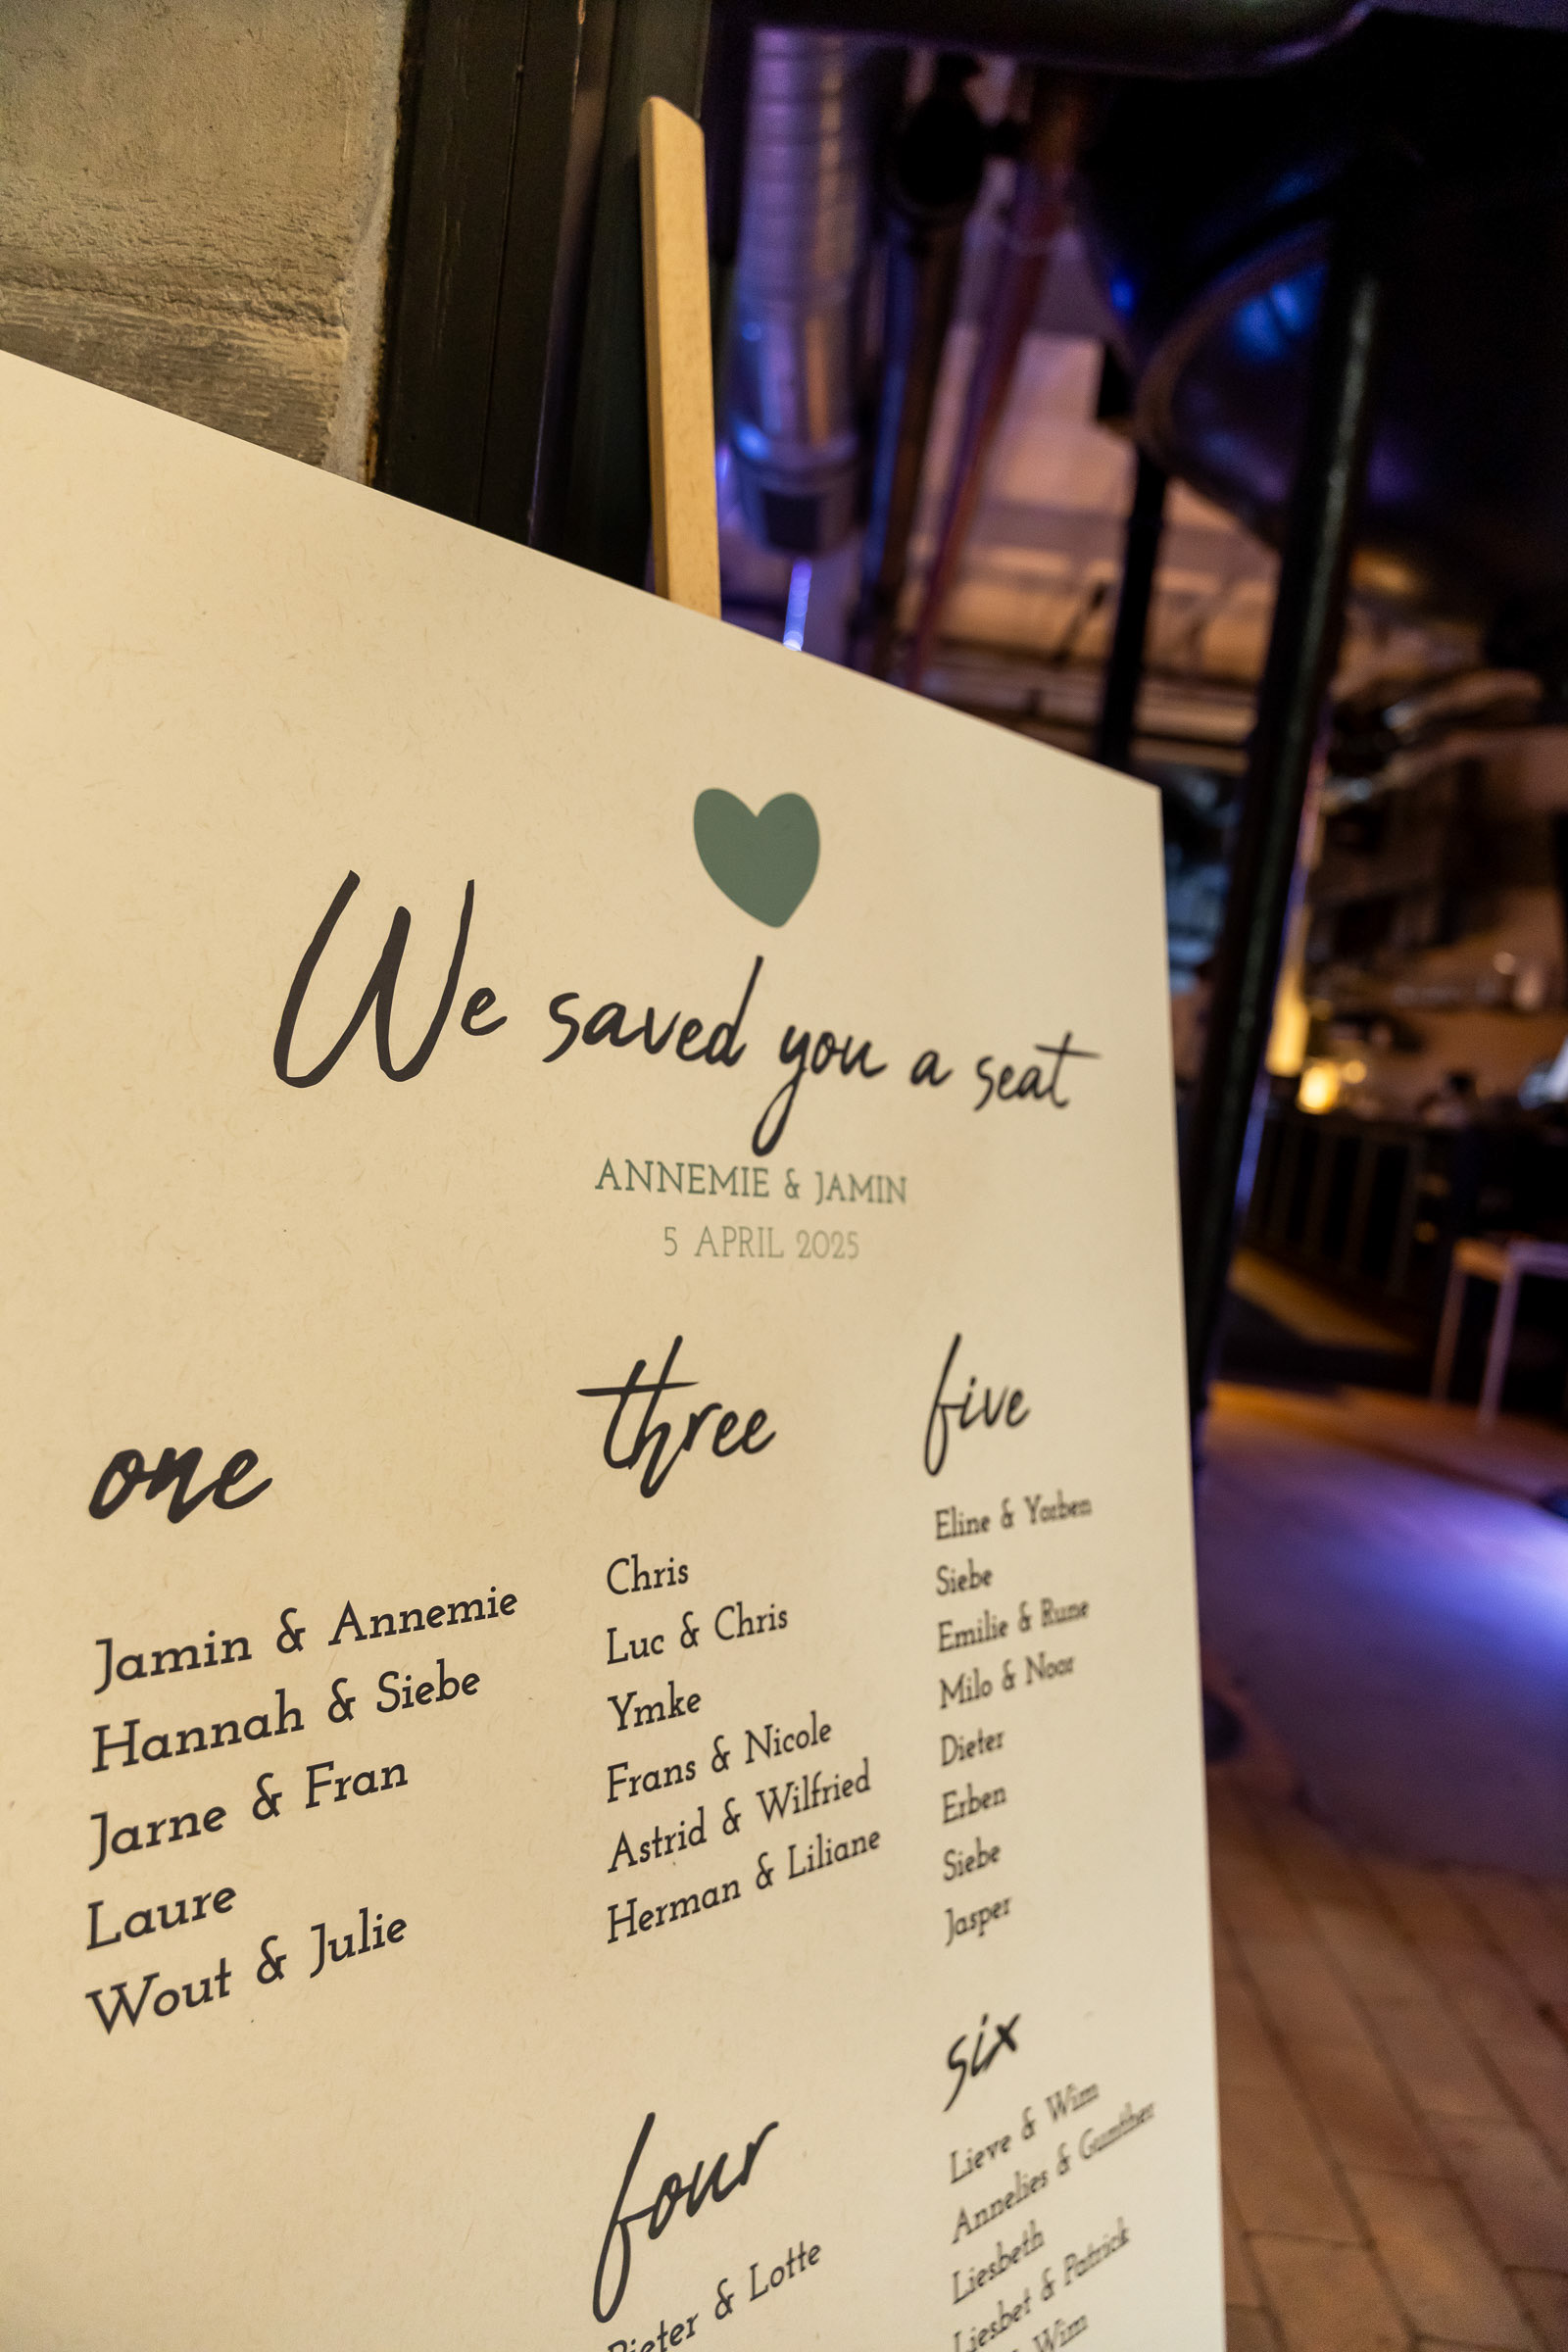 We saved you a seat
ANNEMIE & JAMIN
5 APRIL 2025
one
Jamin & Annemie
Hannah & Siebe
Jarne & Fran
Laure
Wout & Julie
three
Chris
Luc & Chris
Ymke
Frans & Nicole
Astrid & Wilfried
Herman & Liliane
four
& Lotte
five
Eline & Yorben
Siebe
Emilie & Rune
Milo & Noor
Dieter
Erben
Siebe
Jasper
six
Lieve & Wim
Annelies & Gunther
Liesbeth
Liesbet & Patrick
& Wim